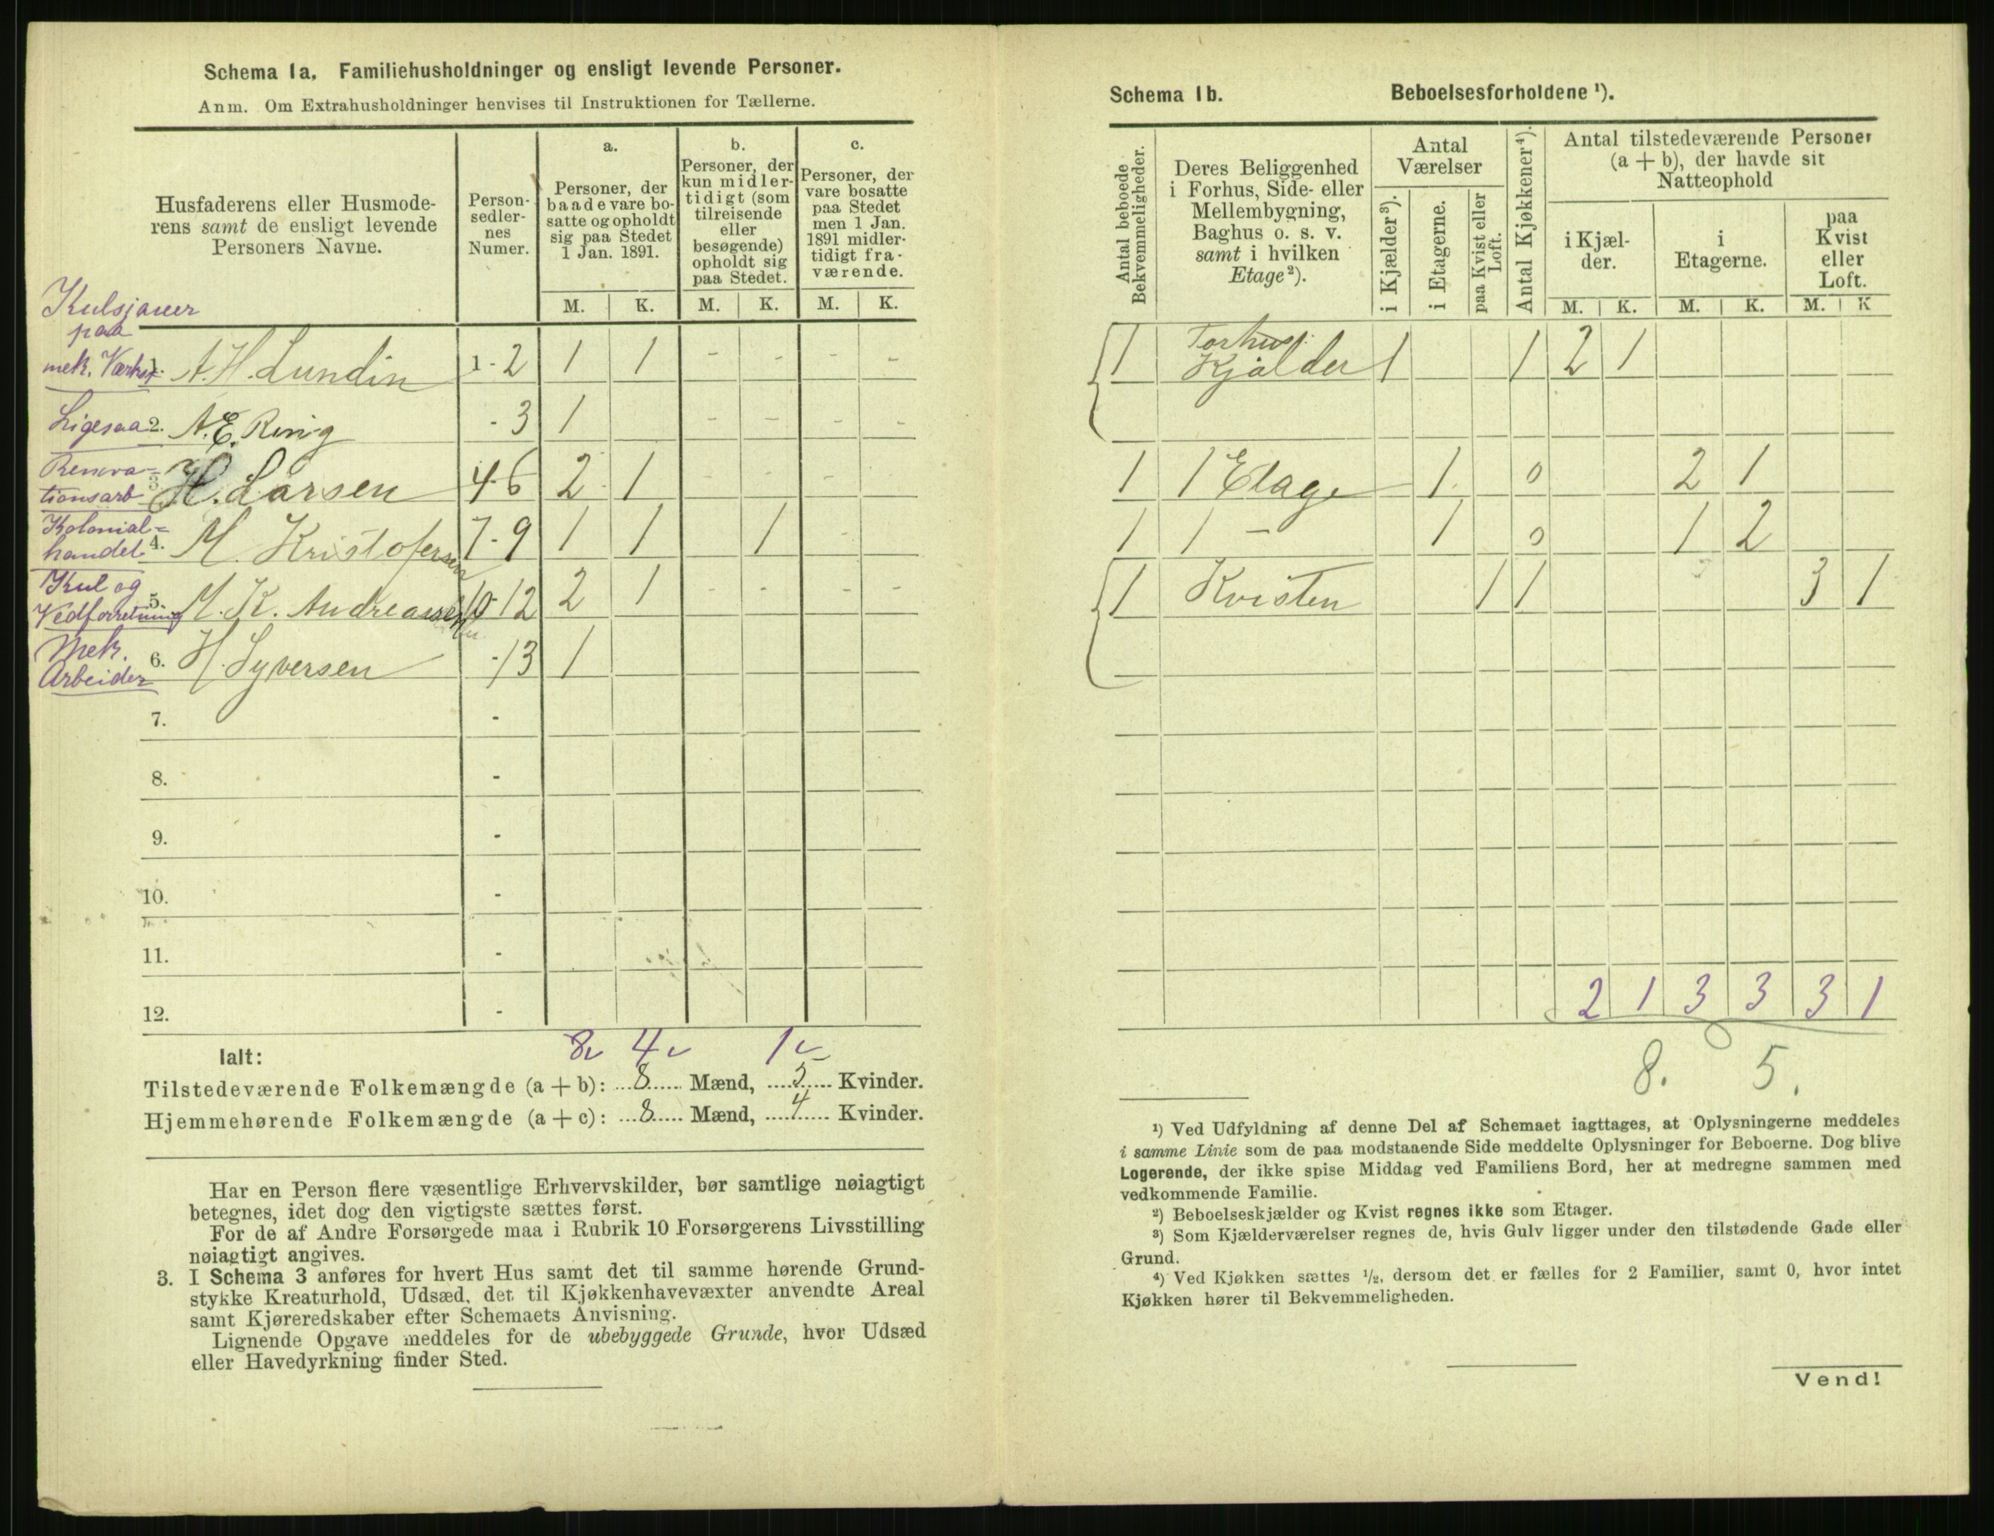 Schema 1a. Familiehusholdninger og ensligt levende Personer.
Anm. Om Extrahusholdninger henvises til Instruktionen for Tællerne.
Husfaderens eller Husmoderens samt de ensligt levende Personers Navne.
Personsedlernes Numer.
a.
Personer, der baade vare bosatte og opholdt sig paa Stedet 1 Jan. 1891.
b.
Personer, der kun midlertidigt (som tilreisende eller besøgende) opholdt sig paa Stedet.
c.
Personer, der vare bosatte paa Stedet men 1 Jan. 1891 midlertidigt fraværende.
M. K. M. K. M. K.
Kulsjauer
paa
mek. Værkst. 1. A. H. Lundin 1 - 2 1 1 - - - -
Ligesaa 2. A. E. Ring - 3 1 - - - -
Renova-
tionsarb 3. H. Larsen 4-6 2 1 - - - -
Kolonial-
handel 4. M. Kristofersen 7-9 1 1 1 - -
Kul og
Vedforretning 5. M. K. Andreassen 10-12 2 1 - - - -
Mek.
Arbeider 6. H. Syversen -13 1
7. -
8. -
9. -
10. -
11. -
12. -
Ialt: 8 4 1
Tilstedeværende Folkemængde (a + b): 8 Mænd, 5 Kvinder.
Hjemmehørende Folkemængde (a + c): 8 Mænd, 4 Kvinder.
Har en Person flere væsentlige Erhvervskilder, bør samtlige nøiagtigt
betegnes, idet dog den vigtigste sættes først.
For de af Andre Forsørgede maa i Rubrik 10 Forsørgerens Livsstilling
nøiagtigt angives.
3. I Schema 3 anføres for hvert Hus samt det til samme hørende Grund-
stykke Kreaturhold, Udsæd, det til Kjøkkenhavevæxter anvendte Areal
samt Kjøreredskaber efter Schemaets Anvisning.
Lignende Opgave meddeles for de ubebyggede Grunde, hvor Udsæd
eller Havedyrkning finder Sted.
Schema 1b. Beboelsesforholdene ¹).
Antal beboede Bekvemmeligheder.
Deres Beliggenhed i Forhus, Side- eller Mellembygning, Baghus o. s. v. samt i hvilken Etage²).
Antal Værelser
i Kjælder³).
i Etagerne.
paa Kvist eller Loft.
Antal Kjøkkener⁴).
Antal tilstedeværende Personer (a + b), der havde sit Natteophold
i Kjælder.
i Etagerne.
paa Kvist eller Loft.
M. K. M. K. M. K
1 Forhus: Kjalder 1 1 2 1
1 1 Etage 1 0 2 1
1 1 - 1 0 1 2
1 Kvisten 1 1 3 1
2 1 3 3 3 1
8. 5.
¹) Ved Udfyldning af denne Del af Schemaet iagttages, at Oplysningerne meddeles
i samme Linie som de paa modstaaende Side meddelte Oplysninger for Beboerne. Dog blive
Logerende, der ikke spise Middag ved Familiens Bord, her at medregne sammen med
vedkommende Familie.
²) Beboelseskjælder og Kvist regnes ikke som Etager.
³) Som Kjælderværelser regnes de, hvis Gulv ligger under den tilstødende Gade eller
Grund.
⁴) Ved Kjøkken sættes ½, dersom det er fælles for 2 Familier, samt 0, hvor intet
Kjøkken hører til Bekvemmeligheden.
Vend!